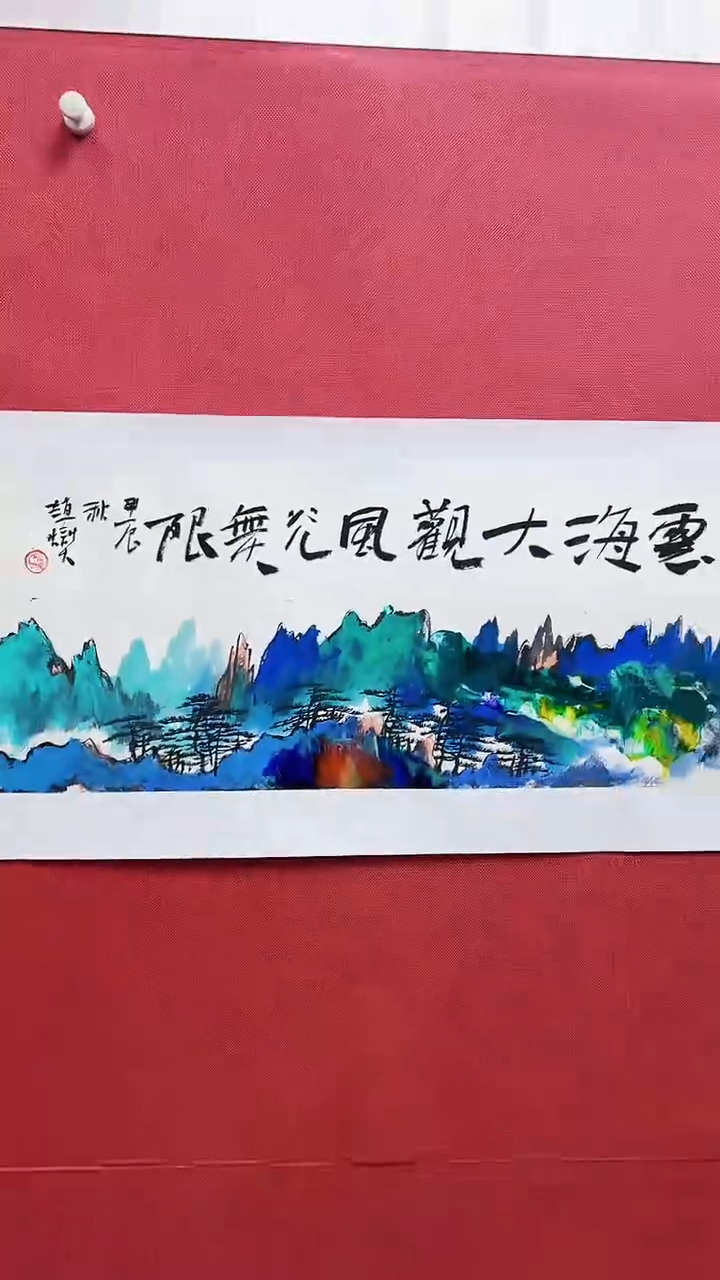 雲海大觀風光無限
甲辰
秋
趙